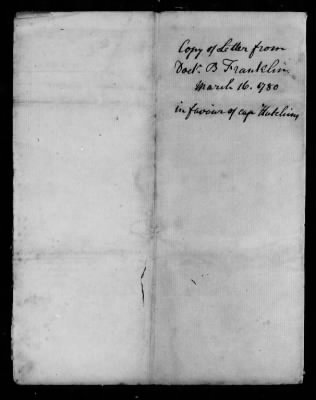 Copy of Letter from
Doctr. B Franklin
March 16. 1780
in favour of cap Hutchins